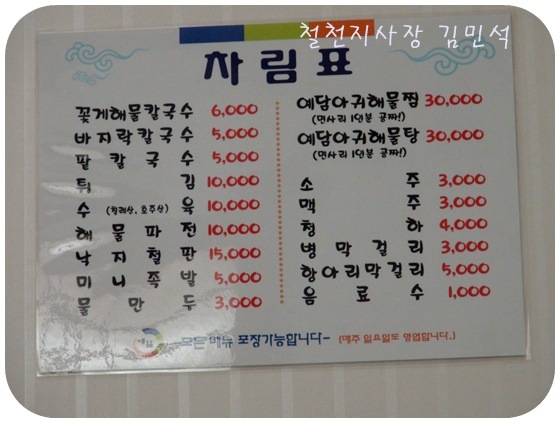 철천지사장 김민석
차림표
꽃게해물칼국수 6,000
바지락칼국수 5,000
팥칼국수 5,000
튀김 10,000
수 (칠레산, 호주산) 육 10,000
해물파전 10,000
낙지철판 15,000
미니족발 5,000
물만두 3,000
예담아귀해물찜 30,000
(면사리 1인분 공짜!)
예담아귀해물탕 30,000
(면사리 1인분 공짜!)
소주 3,000
맥주 3,000
청하 4,000
병막걸리 3,000
항아리막걸리 5,000
음료수 1,000
예담 모든 메뉴 포장가능합니다- (매주 일요일도 영업합니다.)